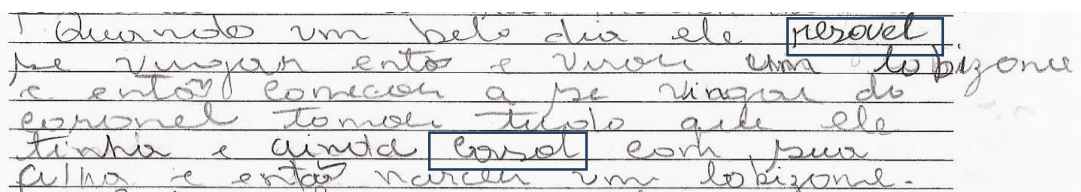 Quando um belo dia ele resovel
se vingar entō e virou um lobizome
e entōo comecou a se vingar do
coronel tomou tudo que ele
tinha e ainda casol com sua
filha e entōo narceu um lobizome.